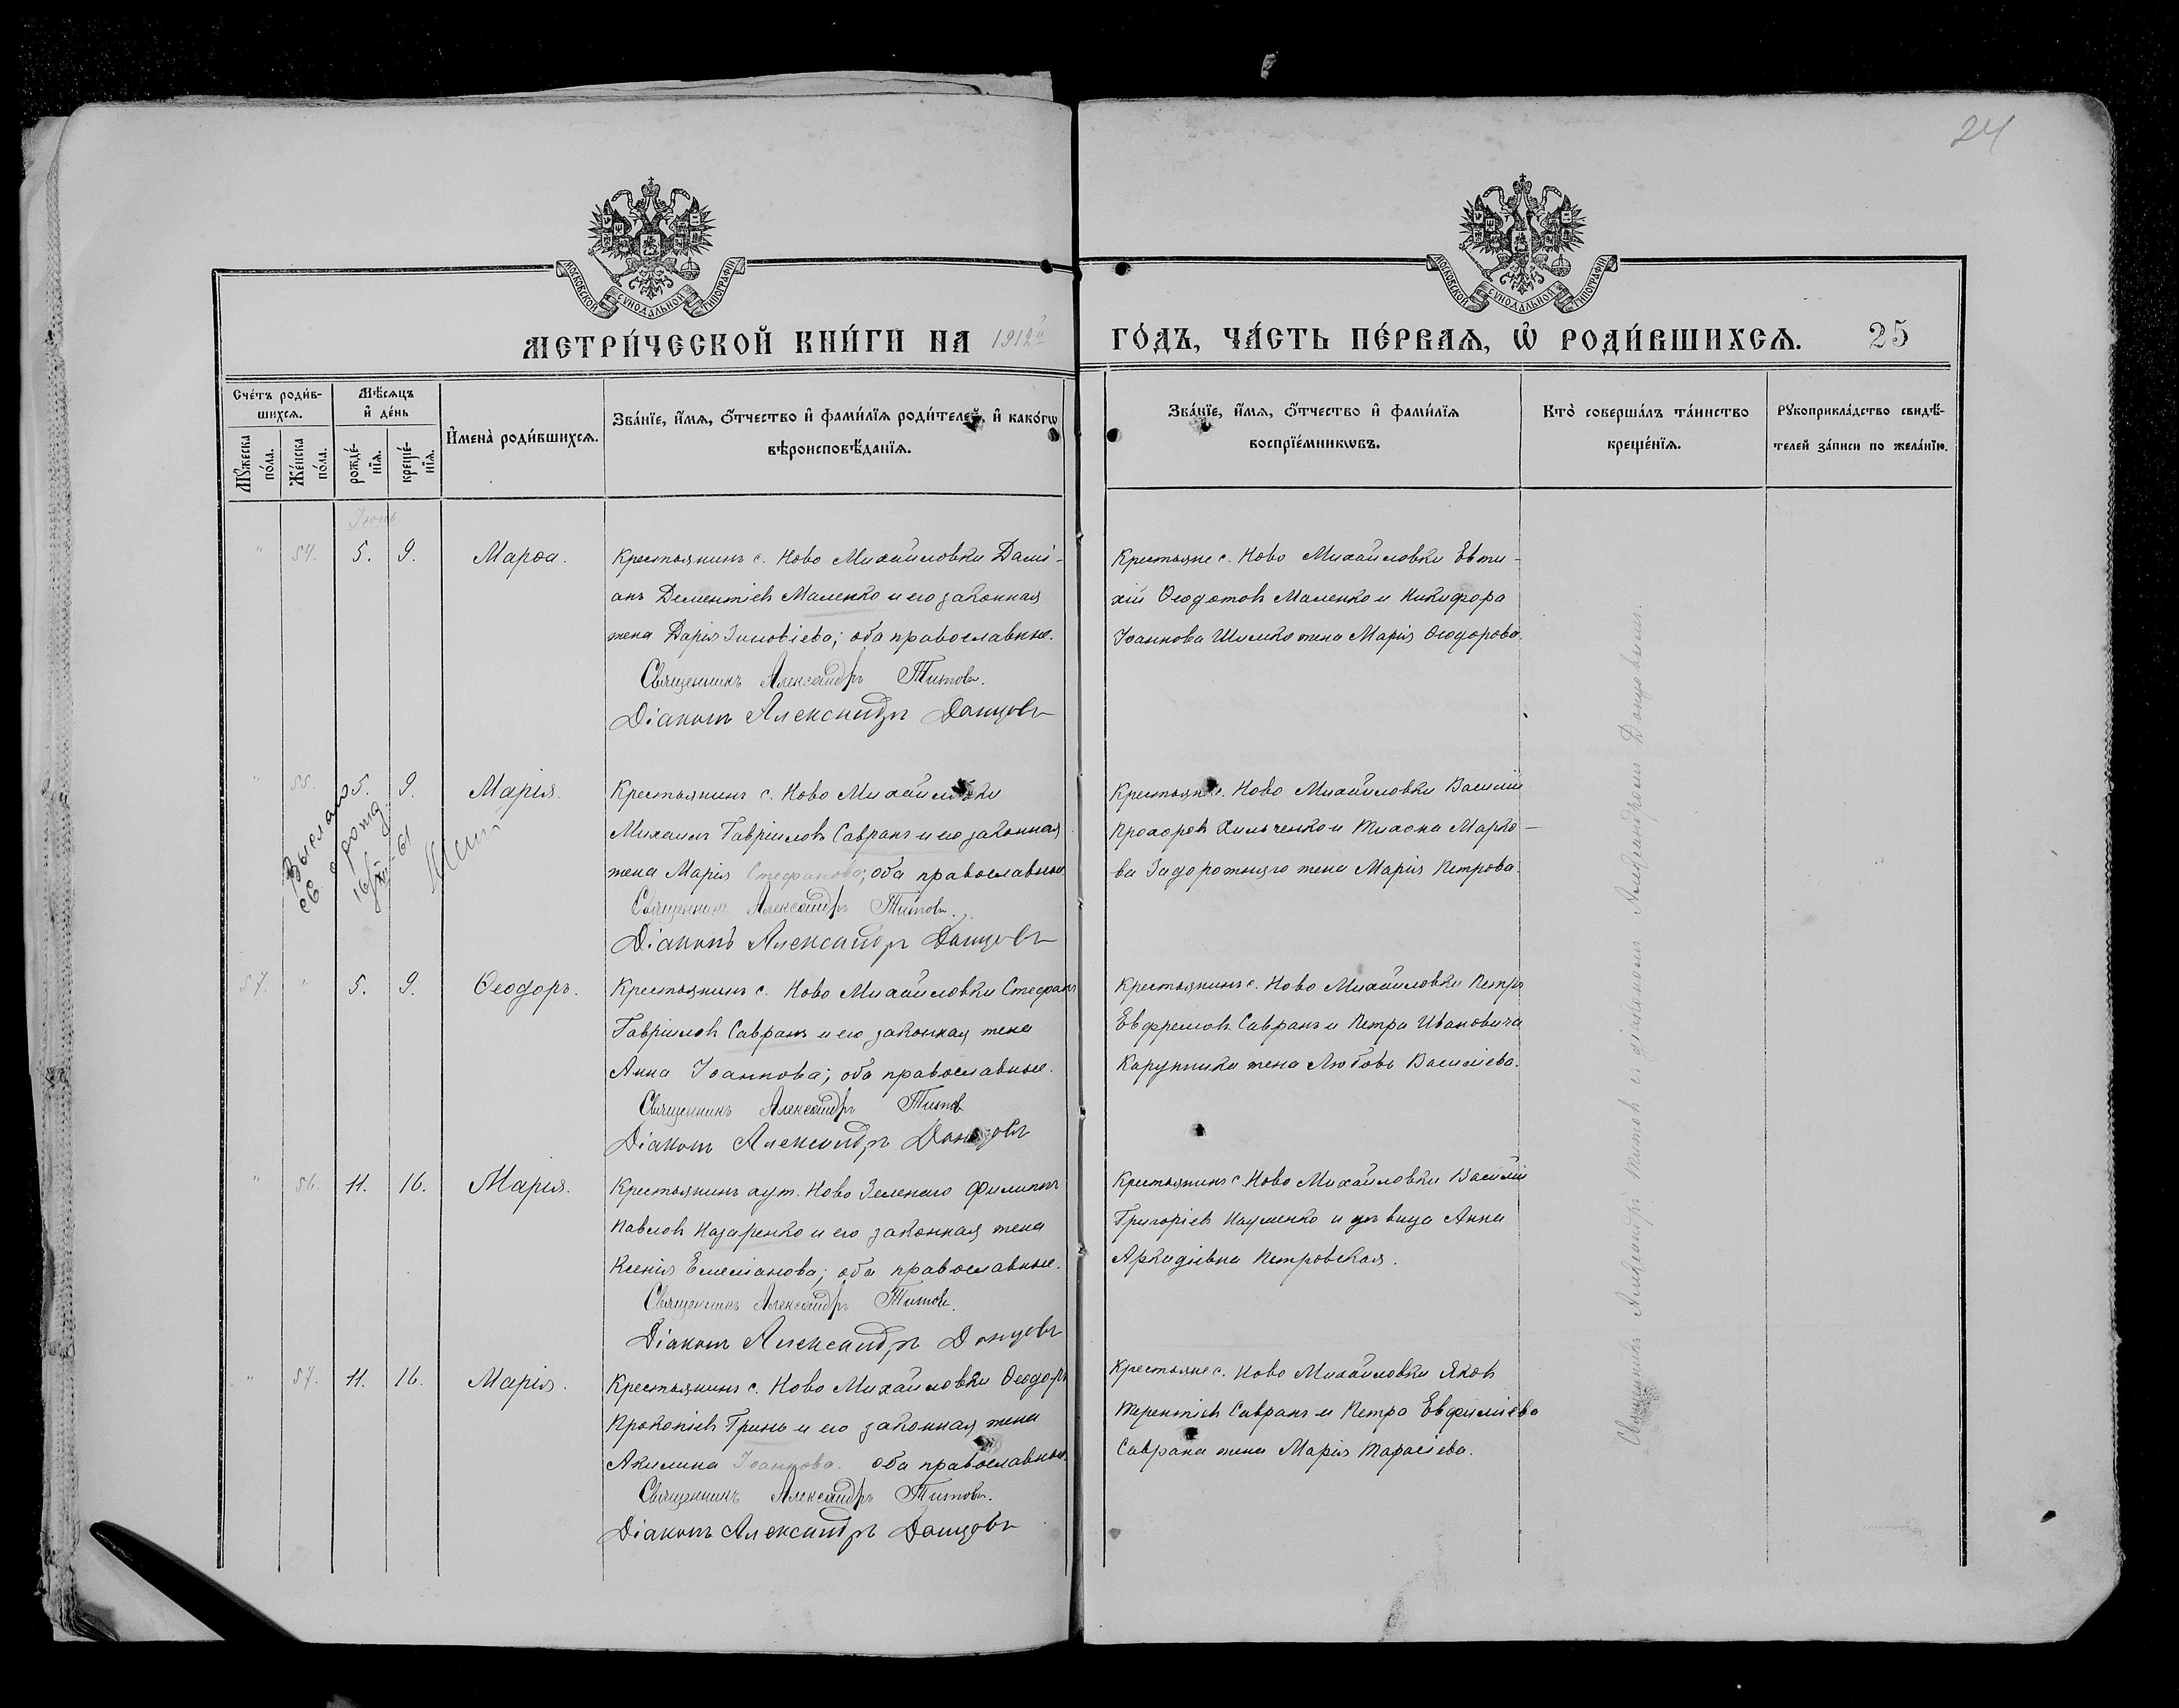 24
МОСКОВСКОЙ СУНОДАЛЬНОЙ ТИПОГРАФІИ
МОСКОВСКОЙ СУНОДАЛЬНОЙ ТИПОГРАФІИ
МЕТРИ́ЧЕСКОЙ КНИ́ГИ НА 1912й ГО́ДЪ, ЧА́СТЬ ПЕ́РВАѦ, Ѡ҆ РОДИ́ВШИХСѦ. 25
Сче́тъ роди́в-
шихсѧ.
Мꙋ́жеска по́ла.
Же́нска по́ла.
Мѣ́сѧцъ
и҆ де́нь
рожде́-
нїѧ.
креще́-
нїѧ.
И҆мена̀ роди́вшихсѧ.
Зва́нїе, и҆́мѧ, ѻ҆́тчество и҆ фами́лїѧ роди́телей, и҆ како́гѡ
вѣроисповѣ́данїѧ.
Зва́нїе, и҆́мѧ, ѻ҆́тчество и҆ фами́лїѧ
воспрїе́мникѡвъ.
Кто̀ соверша́лъ та́инство
креще́нїѧ.
Рꙋкоприкла́дство свидѣ́-
телей за́писи по жела́нїю.
Іюнь
" 54. 5. 9. Марѳа.
Крестьянинъ с. Ново Михайловки Дамі-
анъ Дементіевъ Маленко и его законная
жена Дарія Зиновіева; оба православные.
Священникъ Александръ Титовъ.
Діаконъ Александръ Донцовъ
Крестьяне с. Ново Михайловки Евти-
хій Ѳеодотовъ Маленко и Никифора
Іоаннова жена Марія Ѳеодорова.
" 55. 5. 9. Марія.
Выслано
св. о рожд.
16/XII-61
Крестьянинъ с. Ново Михайловки
Михаилъ Гавріиловъ Савранъ и его законная
жена Марія Стефанова; оба православные
Священникъ Александръ Титовъ.
Діаконъ Александръ Донцовъ
Крестьяне с. Ново Михайловки Василій
Прохоровъ Хильченко и Тихона Марко-
ва Задорожняго жена Марія Петрова.
57. " 5. 9. Ѳеодоръ.
Крестьянинъ с. Ново Михайловки Стефанъ
Гавріиловъ Савранъ и его законная жена
Анна Іоаннова; оба православные.
Священникъ Александръ Титовъ
Діаконъ Александръ Донцовъ
Крестьянинъ с. Ново Михайловки Петръ
Евфремовъ Савранъ и Петра Ивановича
жена Любовь Василіева.
" 56. 11. 16. Марія.
Крестьянинъ хут. Ново Зеленаго Филиппъ
Павловъ Назаренко и его законная жена
Ксенія Емеліанова; оба православные.
Священникъ Александръ Титовъ.
Діаконъ Александръ Донцовъ
Крестьянинъ с. Ново Михайловки Василій
Григоріевъ Науменко и дѣвица Анна
Аркадіевна Петровская.
" 57. 11. 16. Марія.
Крестьянинъ с. Ново Михайловки Ѳеодоръ
Прокопіевъ Гринь и его законная жена
Акилина Іоаннова. оба православные.
Священникъ Александръ Титовъ.
Діаконъ Александръ Донцовъ
Крестьяне с. Ново Михайловки Яковъ
Терентіевъ Савранъ и Петра Евфиміева
Саврана жена Марія Тарасіева.
Священникъ Александръ Титовъ съ діакономъ Александромъ Донцовымъ.